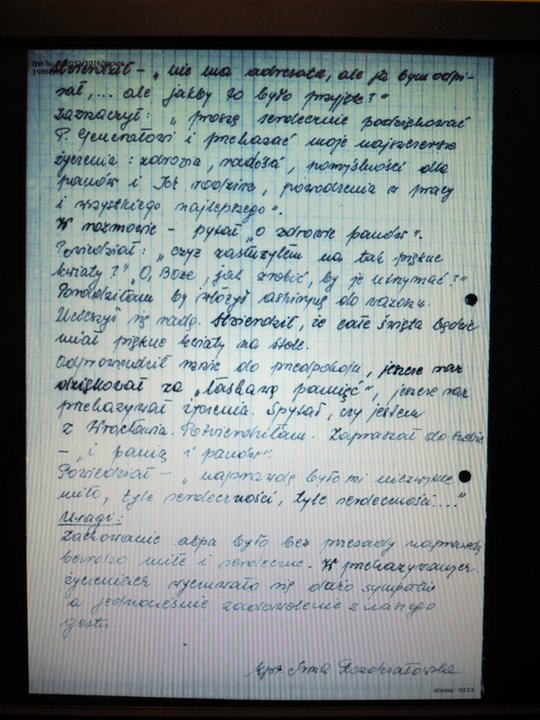 Stwierdził – „nie ma adresata, ale ja bym odpi-
sał,... ale jakby to było przyjęte?"
Zaznaczył: „proszę serdecznie podziękować
P. Generałowi i przekazać moje najszczersze
życzenia: zdrowia, radości, pomyślności dla
panów i Ich rodzin, powodzenia w pracy
i wszystkiego najlepszego".
W rozmowie – pytał „o zdrowie panów".
Powiedział: „czyż zasłużyłem na tak piękne
kwiaty?" „O, Boże, jak zrobić, by je utrzymać?"
Poradziłam by włożył aspirynę do wazonu.
Ucieszył się radą. Stwierdził, że całe święta będzie
miał piękne kwiaty na stole.
Odprowadził mnie do przedpokoju, jeszcze raz
dziękował za „łaskawą pamięć", jeszcze raz
przekazywał życzenia. Spytał, czy jestem
z Wrocławia. Potwierdziłam. Zapraszał do siebie
– „i panią i panów".
Powiedział – „naprawdę było mi niezwykle
miło, tyle serdeczności, tyle serdeczności...."
Uwagi:
Zachowanie abpa było bez przesady naprawdę
bardzo miłe i serdeczne. W przekazywanych
życzeniach wyczuwało się dużo sympatii
a jednocześnie zadowolenie z naszego
gestu.
strona: 0212